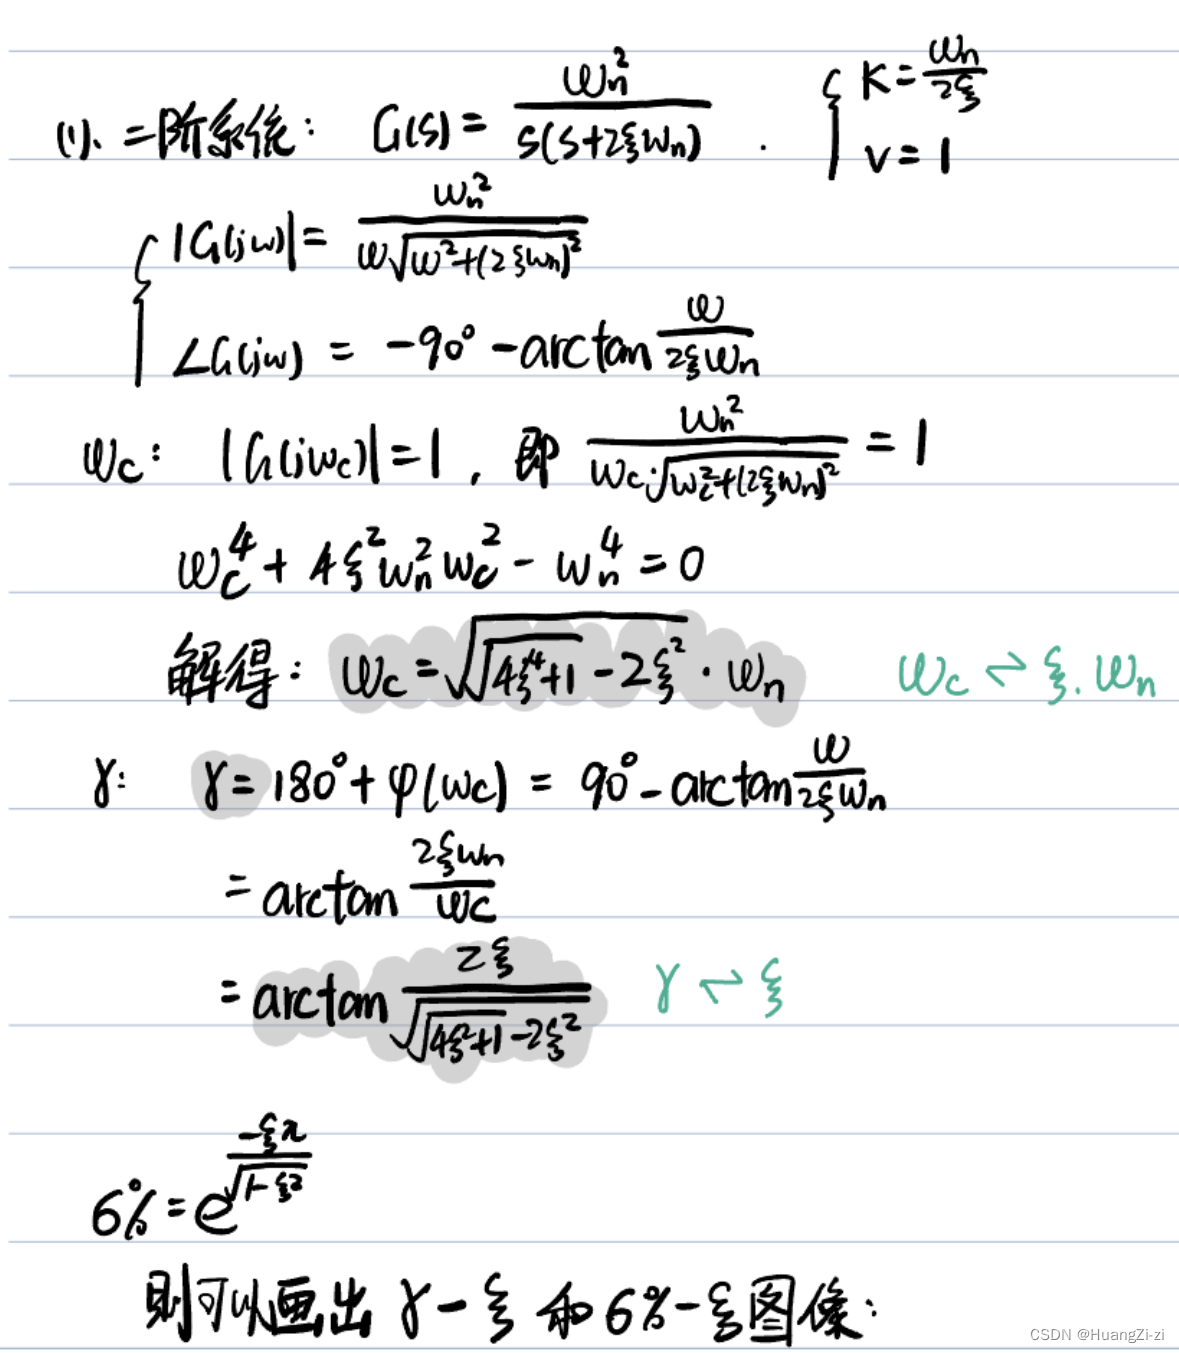 (1)、二阶系统: G(s) = ωn² / s(s+2ξωn) . { K = ωn / 2ξ
v = 1
{ |G(jω)| = ωn² / ω√(ω²+(2ξωn)²)
∠G(jω) = -90° - arctan ω / 2ξωn
ωc: |G(jωc)| = 1, 即 ωn² / ωc·√(ωc²+(2ξωn)²) = 1
ωc⁴ + 4ξ²ωn²ωc² - ωn⁴ = 0
解得: ωc = √(√(4ξ⁴+1) - 2ξ²) · ωn ωc ⇌ ξ. ωn
γ: γ = 180° + φ(ωc) = 90° - arctan ω / 2ξωn
= arctan 2ξωn / ωc
= arctan 2ξ / √(√(4ξ²+1) - 2ξ²) γ ⇌ ξ
6% = e^(-ξπ / √(1-ξ²))
则可以画出 γ-ξ 和 6%-ξ 图像:
CSDN @HuangZi-zi